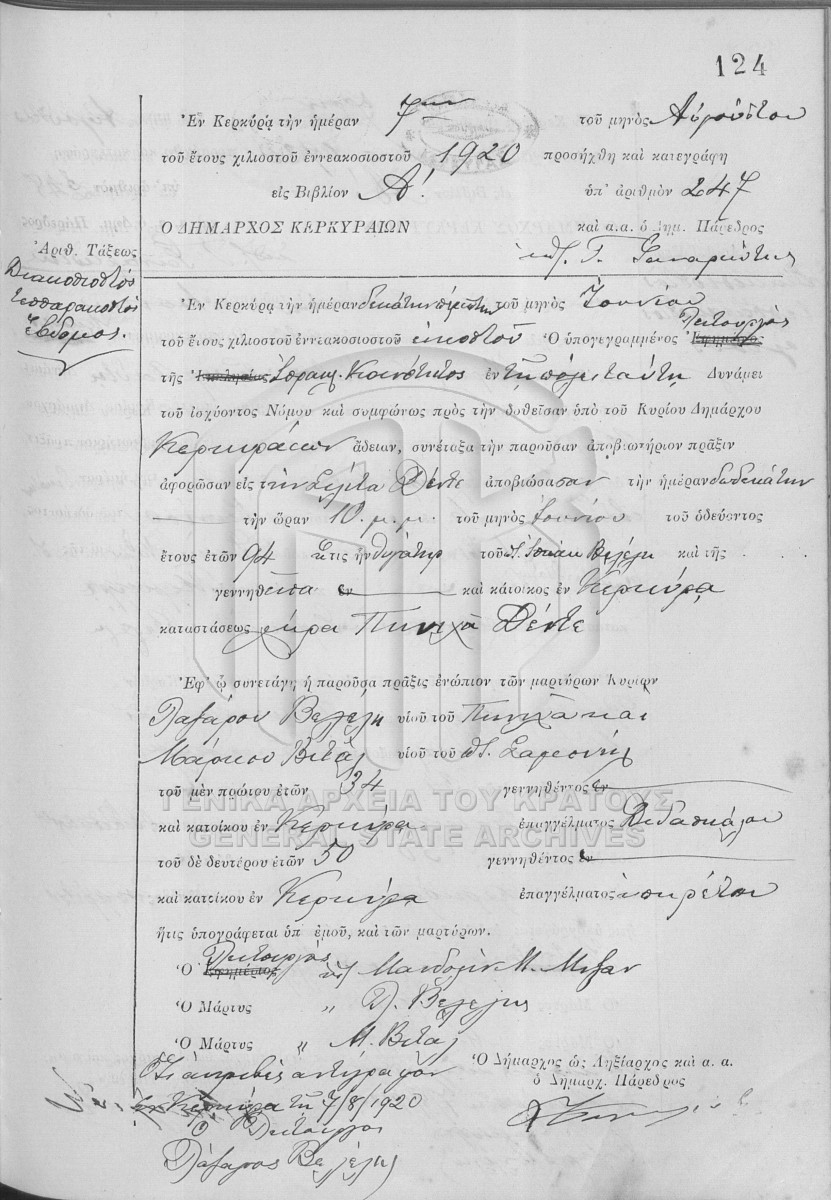 124
Ἐν Κερκύρᾳ τὴν ἡμέραν 7ην τοῦ μηνὸς Αὐγούστου
τοῦ ἔτους χιλιοστοῦ ἐννεακοσιοστοῦ 1920 προσήχθη καὶ κατεγράφη
εἰς Βιβλίον Α! ὑπ' ἀριθμὸν 247
Ο ΔΗΜΑΡΧΟΣ ΚΕΡΚΥΡΑΙΩΝ καὶ α.α. ὁ Δημ. Πάρεδρος
Γ.
Ἀριθ. Τάξεως
Διακοσιοστός
τεσσαρακοστός
ἕβδομος.
Ἐν Κερκύρᾳ τὴν ἡμέραν δεκάτην πέμπτην τοῦ μηνὸς Ἰουνίου
τοῦ ἔτους χιλιοστοῦ ἐννεακοσιοστοῦ εἰκοστοῦ Ὁ ὑπογεγραμμένος Ἐφημέριος Λειτουργὸς
τῆς Ἐκκλησίας Ἰσραηλ. Κοινότητος ἐν τῇ πόλει ταύτῃ Δυνάμει
τοῦ ἰσχύοντος Νόμου καὶ συμφώνως πρὸς τὴν δοθεῖσαν ὑπὸ τοῦ Κυρίου Δημάρχου
Κερκυραίων ἄδειαν, συνέταξα τὴν παροῦσαν ἀποβιωτήριον πρᾶξιν
ἀφορῶσαν εἰς τὴν Δέντε ἀποβιώσασαν τὴν ἡμέραν δωδεκάτην
τὴν ὥραν 10 μ.μ. τοῦ μηνὸς Ἰουνίου τοῦ ὁδεύοντος
ἔτους ἐτῶν 94 ἥτις ἦν θυγάτηρ τοῦ Ἰσαὰκ Βελέλη καὶ τῆς
γεννηθεῖσα ἐν καὶ κάτοικος ἐν Κερκύρᾳ
καταστάσεως χήρα Πινχᾶ Δέντε
Ἐφ' ᾧ συνετάγη ἡ παροῦσα πρᾶξις ἐνώπιον τῶν μαρτύρων Κυρίων
Λαζάρου Βελέλη υἱοῦ τοῦ Πινχᾶ καὶ
Μάρκου Βιτάλ υἱοῦ τοῦ Σαμουὴλ
τοῦ μὲν πρώτου ἐτῶν 34 γεννηθέντος ἐν
καὶ κατοίκου ἐν Κερκύρᾳ ἐπαγγέλματος Διδασκάλου
τοῦ δὲ δευτέρου ἐτῶν 50 γεννηθέντος ἐν
καὶ κατοίκου ἐν Κερκύρᾳ ἐπαγγέλματος ὑπηρέτου
ἥτις ὑπογράφεται ὑπ' ἐμοῦ, καὶ τῶν μαρτύρων.
Ὁ Ἐφημέριος Λειτουργὸς Μ. Μιζαν
Ὁ Μάρτυς " Λ. Βελέλης
Ὁ Μάρτυς " Μ. Βιτάλ
Ὁ Δήμαρχος ὡς Ληξίαρχος καὶ α. α.
ὁ Δημαρχ. Πάρεδρος
Δι' ἀκριβὲς ἀντίγραφον
Ἐν Κερκύρᾳ τῇ 7/8/1920
Ὁ Λειτουργὸς
Λάζαρος Βελέλης
ΓΕΝΙΚΑ ΑΡΧΕΙΑ ΤΟΥ ΚΡΑΤΟΥΣ
GENERAL STATE ARCHIVES